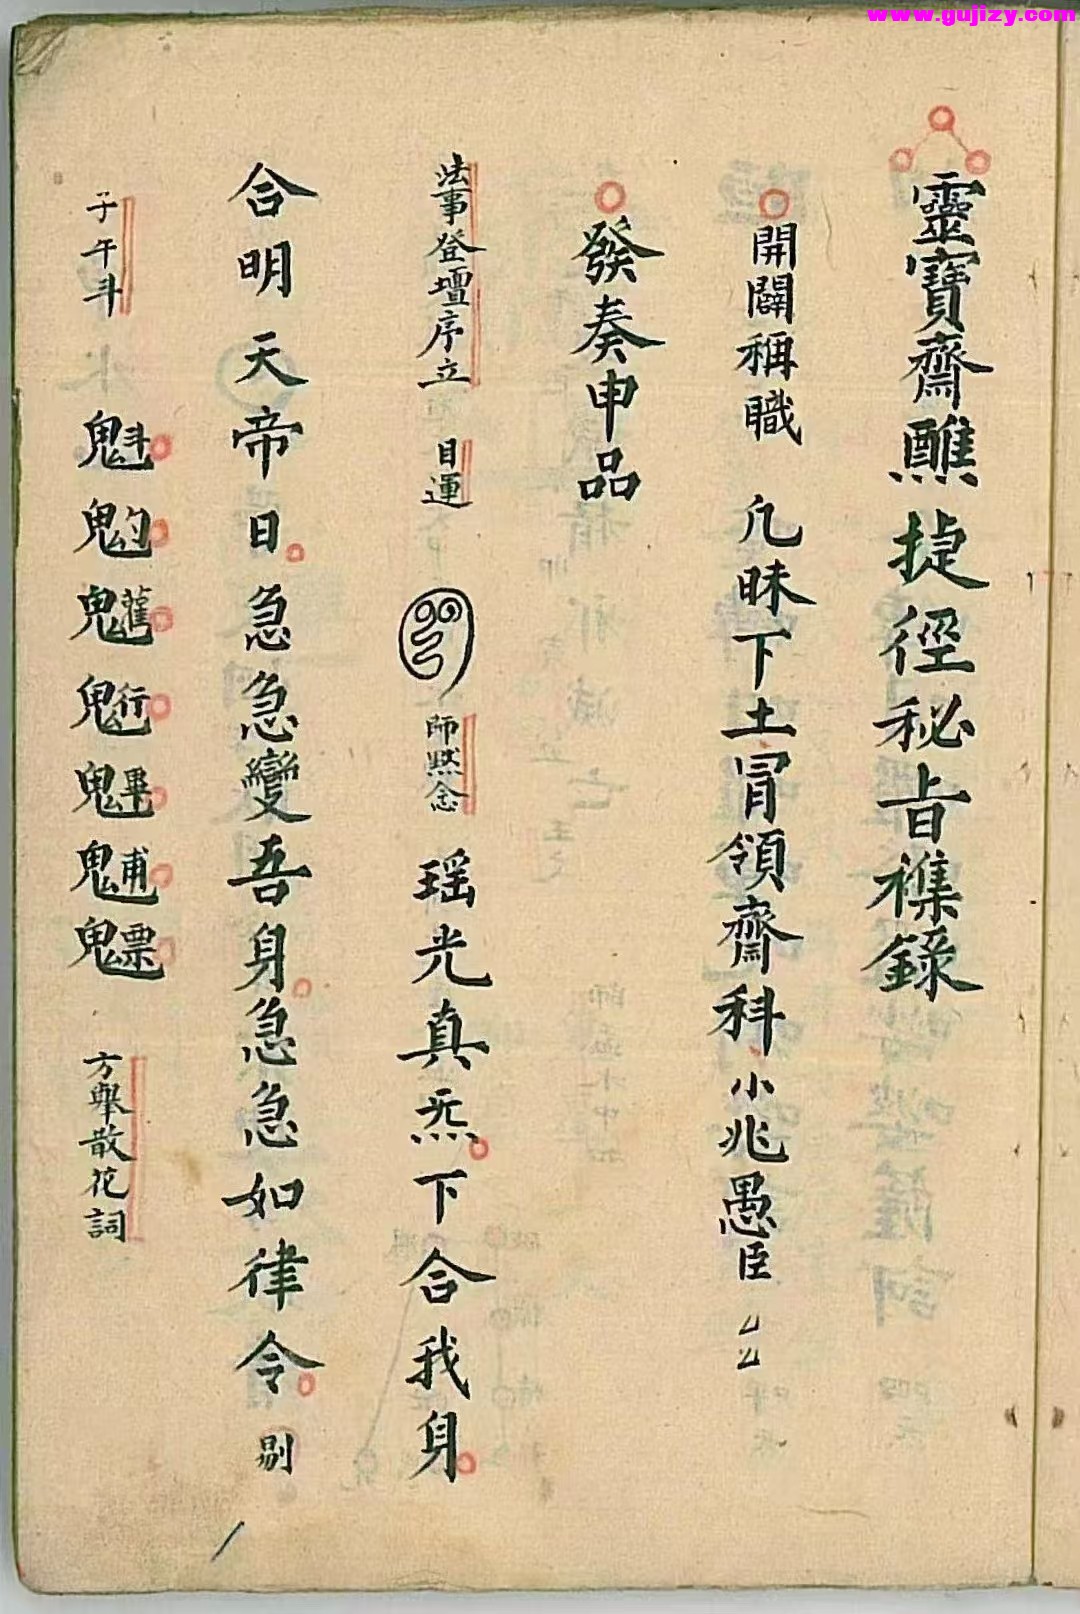 www.gujizy.com
靈寶齋醮捷徑秘旨襍錄
開闢稱職 凡昧下土冐領齋科小兆愚臣厶厶
發奏申品
法事登壇序立 目運 師黙念 瑶光真炁下合我身
合明天帝日急急變吾身急急如律令
子午斗 魁𩲃䰢𩲵魓䰷魒 方舉散花詞